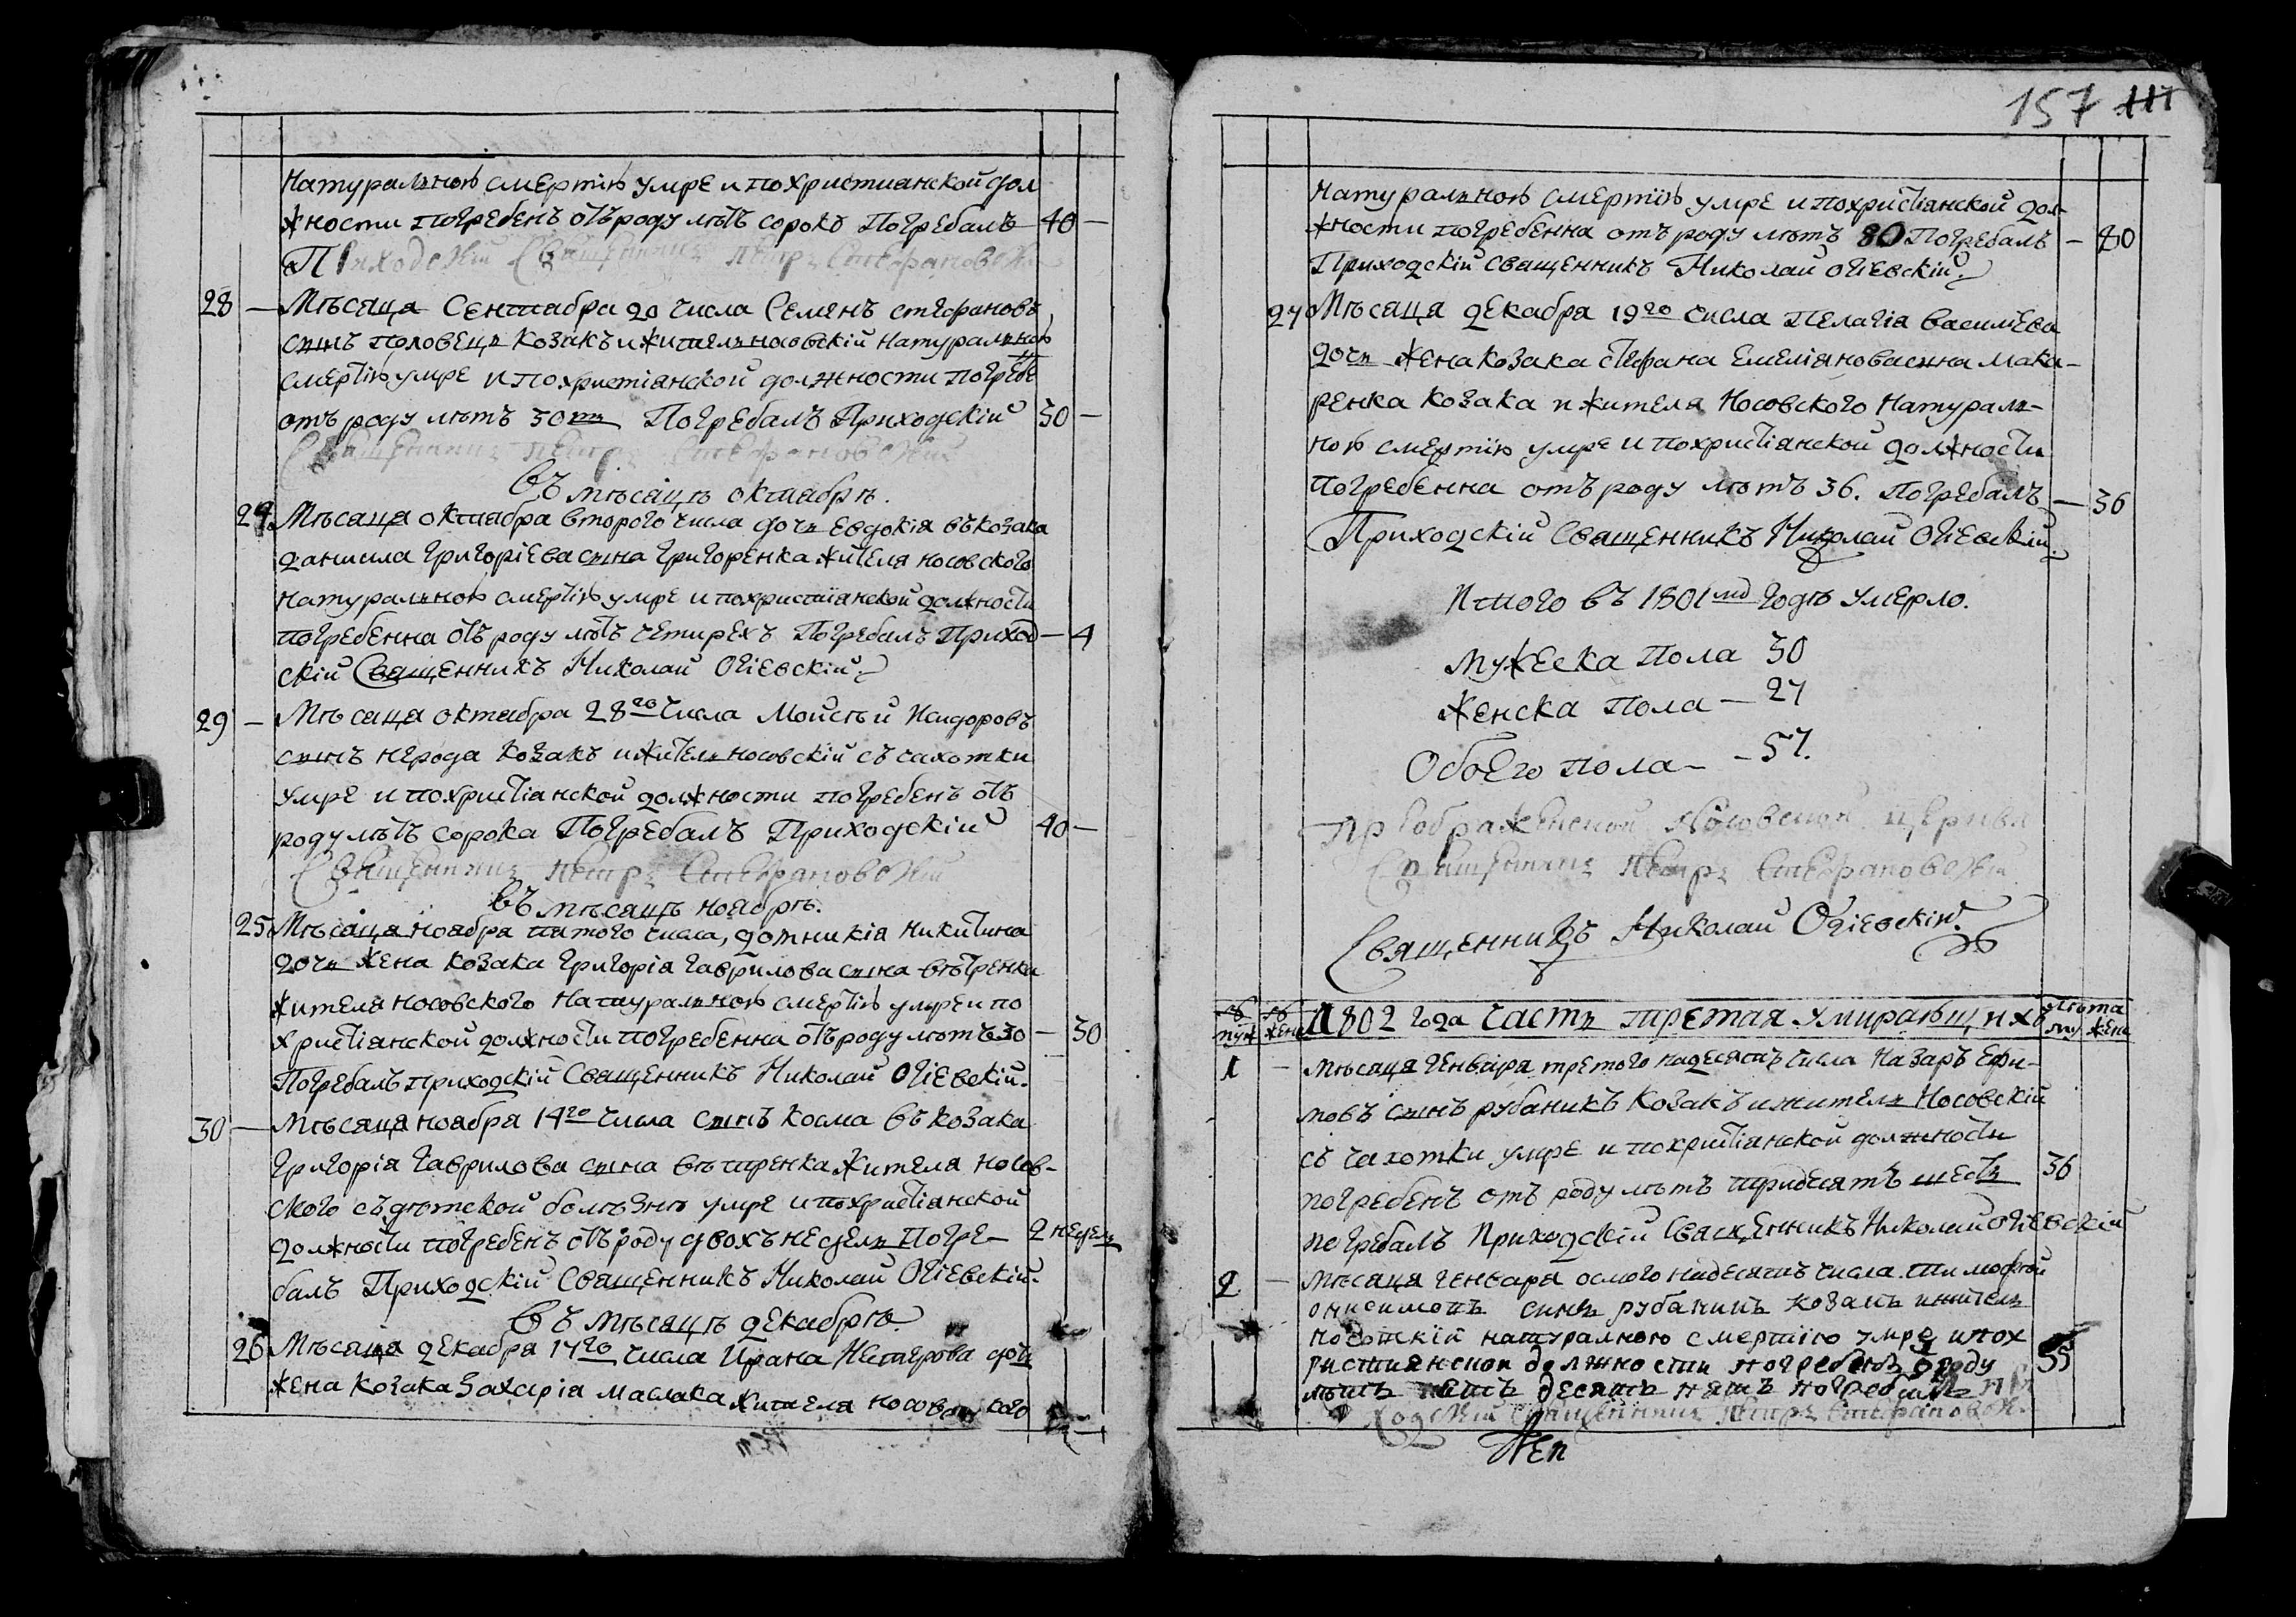 Натуралною смертію умре и похристианской дол
жности погребенъ отъ роду летъ сорокъ Погребалъ 40 —
Приходскій Священникъ Петръ Стефановскій
28 — Мѣсяца Сентября 20 числа Семенъ стефановъ
сынъ половець козакъ и житель носовскій натуралною
смертію умре и похристіянской должности погребе
отъ роду лѣтъ 30ть Погребалъ Приходскій 30 —
Священникъ Петръ Стефановскій
въ мѣсяцѣ октябрѣ.
24 Мѣсяца октября второго числа дочь Евдокія въ козака
данила григоріева сына григоренка жителя носовского
натуралною смертію умре и похристіянской должности
погребенна отъ роду лѣтъ четирехъ Погребалъ Приход — 4
скій Священникъ Николай Огіевскій
29 — Мѣсяца октября 28го числа Мойсѣй Исидоровъ
сынъ нерода козакъ и житель носовскій съ сахотки
умре и похристіанской должности погребенъ отъ
роду лѣтъ сорока Погребалъ Приходскій 40 —
Священникъ Петръ Стефановскій
въ мѣсяцѣ ноябрѣ.
25 Мѣсяца ноября пятого числа, домникія никитина
дочь жена козака григорія гаврилова сына вѣтренка
жителя носовского натуралною смертію умре и по
христіанской должности погребенна отъ роду лѣтъ 30 — 30
Погребалъ приходскій Священникъ Николай Огіевскій.
30 — Мѣсяца ноября 14го числа сынъ косма въ козака
григорія гаврилова сына вѣтренка жителя носов-
ского съ дѣтской болѣзни умре и похристіанской
должности погребенъ отъ роду двохъ недель Погре- 2 недель
балъ Приходскій Священникъ Николай Огіевскій.
въ мѣсяцѣ декабрѣ.
26 Мѣсяца декабря 17го числа Ирина Нестерова дочь
жена козака Захарія маслака жителя носовского
157
Натуралною смертію умре и похристіанской дол-
жности погребенна отъ роду лѣтъ 80 Погребалъ — 80
Приходскій священникъ Николай огіевскій.
27 Мѣсяца декабря 19го числа Пелагія васильева
дочь жена козака стефана Емеліяновасина мака-
ренка козака и жителя Носовского Натурал-
ною смертію умре и похристіанской должности
погребенна отъ роду лѣтъ 36. Погребалъ — 36
Приходскій Священникъ Николай Огіевскій.
Итого въ 1801мъ годѣ умерло.
Мужеска Пола 30
Женска Пола — 27
Обоего пола — 57.
Преображенской Носовской церкви
Священникъ Петръ Стефановскій
Священникъ Николай Огіевскій.
муж жен 1802 года часть третая умирающихъ лѣта му жен
1 — Мѣсяца генваря третого надесять числа Назаръ Ефи-
мовъ сынъ рубаникъ козакъ и житель Носовскій
съ чахотки умре и похристіанской должности
погребенъ отъ роду лѣтъ тридесятъ шесть 36
погребалъ Приходскій Священникъ Николай Огіевскій
2 — Мѣсяца генваря осмого надесять числа тимофей
онисимовъ синъ рубаникъ козакъ и житель
носовскій натуралною смертію умре и пох
ристиянской должности погребенъ роду 55
лѣтъ пять десятъ пять погребалъ при
ходскій Священникъ Петръ Стефановскі